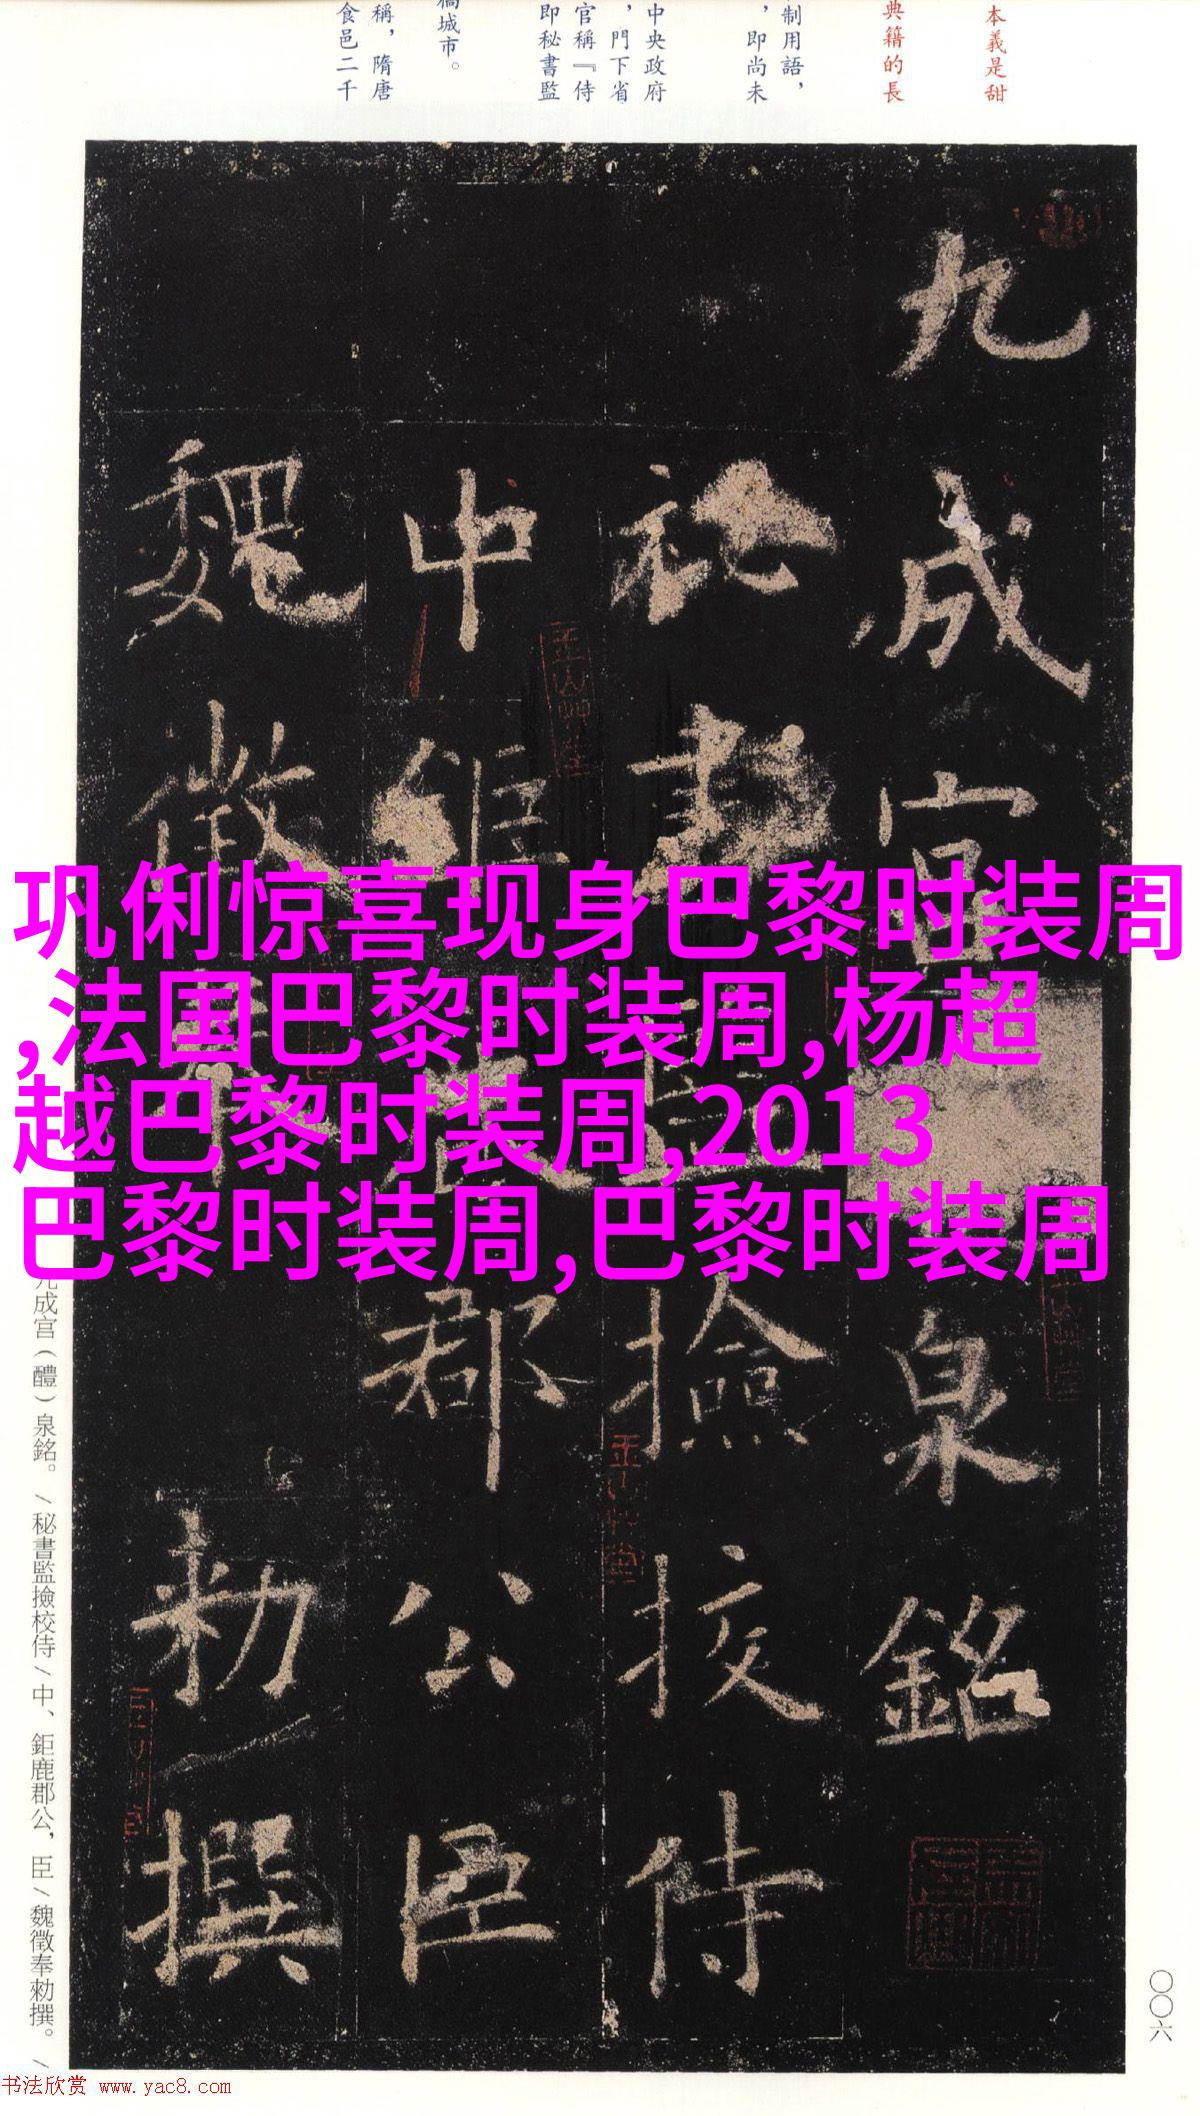 本義是甜
典籍的長
制用語，
，即尚未
中央政府
，門下省
官稱『侍
即秘書監
稿城市。
稱，隋唐
食邑二千
九成宫
泉銘
祕書
撿挍侍
中
郡公臣
魏徵
勑撰
巩俐惊喜现身巴黎时装周
,法国巴黎时装周,杨超
越巴黎时装周,2013
巴黎时装周,巴黎时装周
九成宫（醴）泉銘。/秘書監撿校侍/中、鉅鹿郡公，臣/魏徵奉勑撰。/
〇〇六
书法欣赏 www.yac8.com